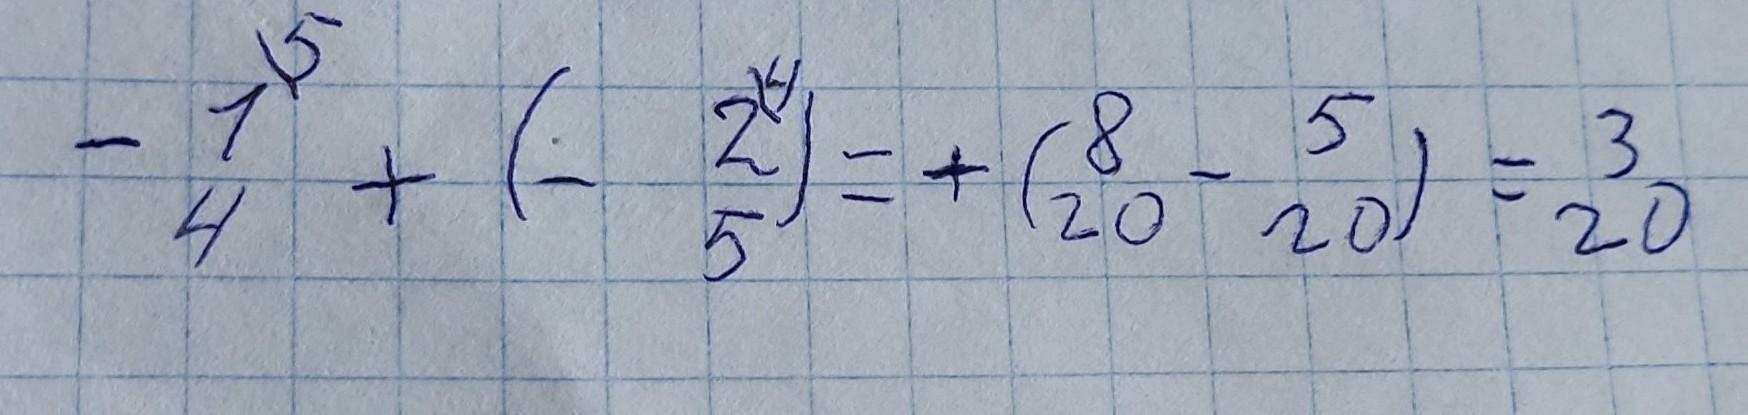 - 1/4 ⁵ + (- 2/5 ⁴) = + (8/20 - 5/20) = 3/20